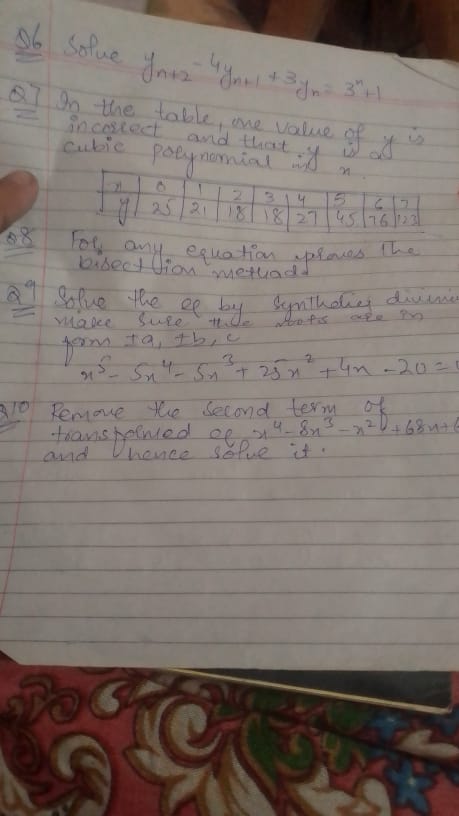 Q6 Solve yn+2 - 4yn+1 + 3yn = 3^n+1
Q7 In the table, one value of y is
incorrect and that y is a
cubic polynomial in x.
x 0 1 2 3 4 5 6 7
y 25 21 18 18 27 45 76 123
Q8 For any equation proves the
bisection method
Q9 Solve the eq by
make sure the roots are in
form ±a, ±b, c
x^5 - 5x^4 - 5x^3 + 25x^2 + 4x - 20 =
Q10 Remove the second term of
eq x^4 - 8x^3 - x^2 + 68x + 6
and hence solve it.